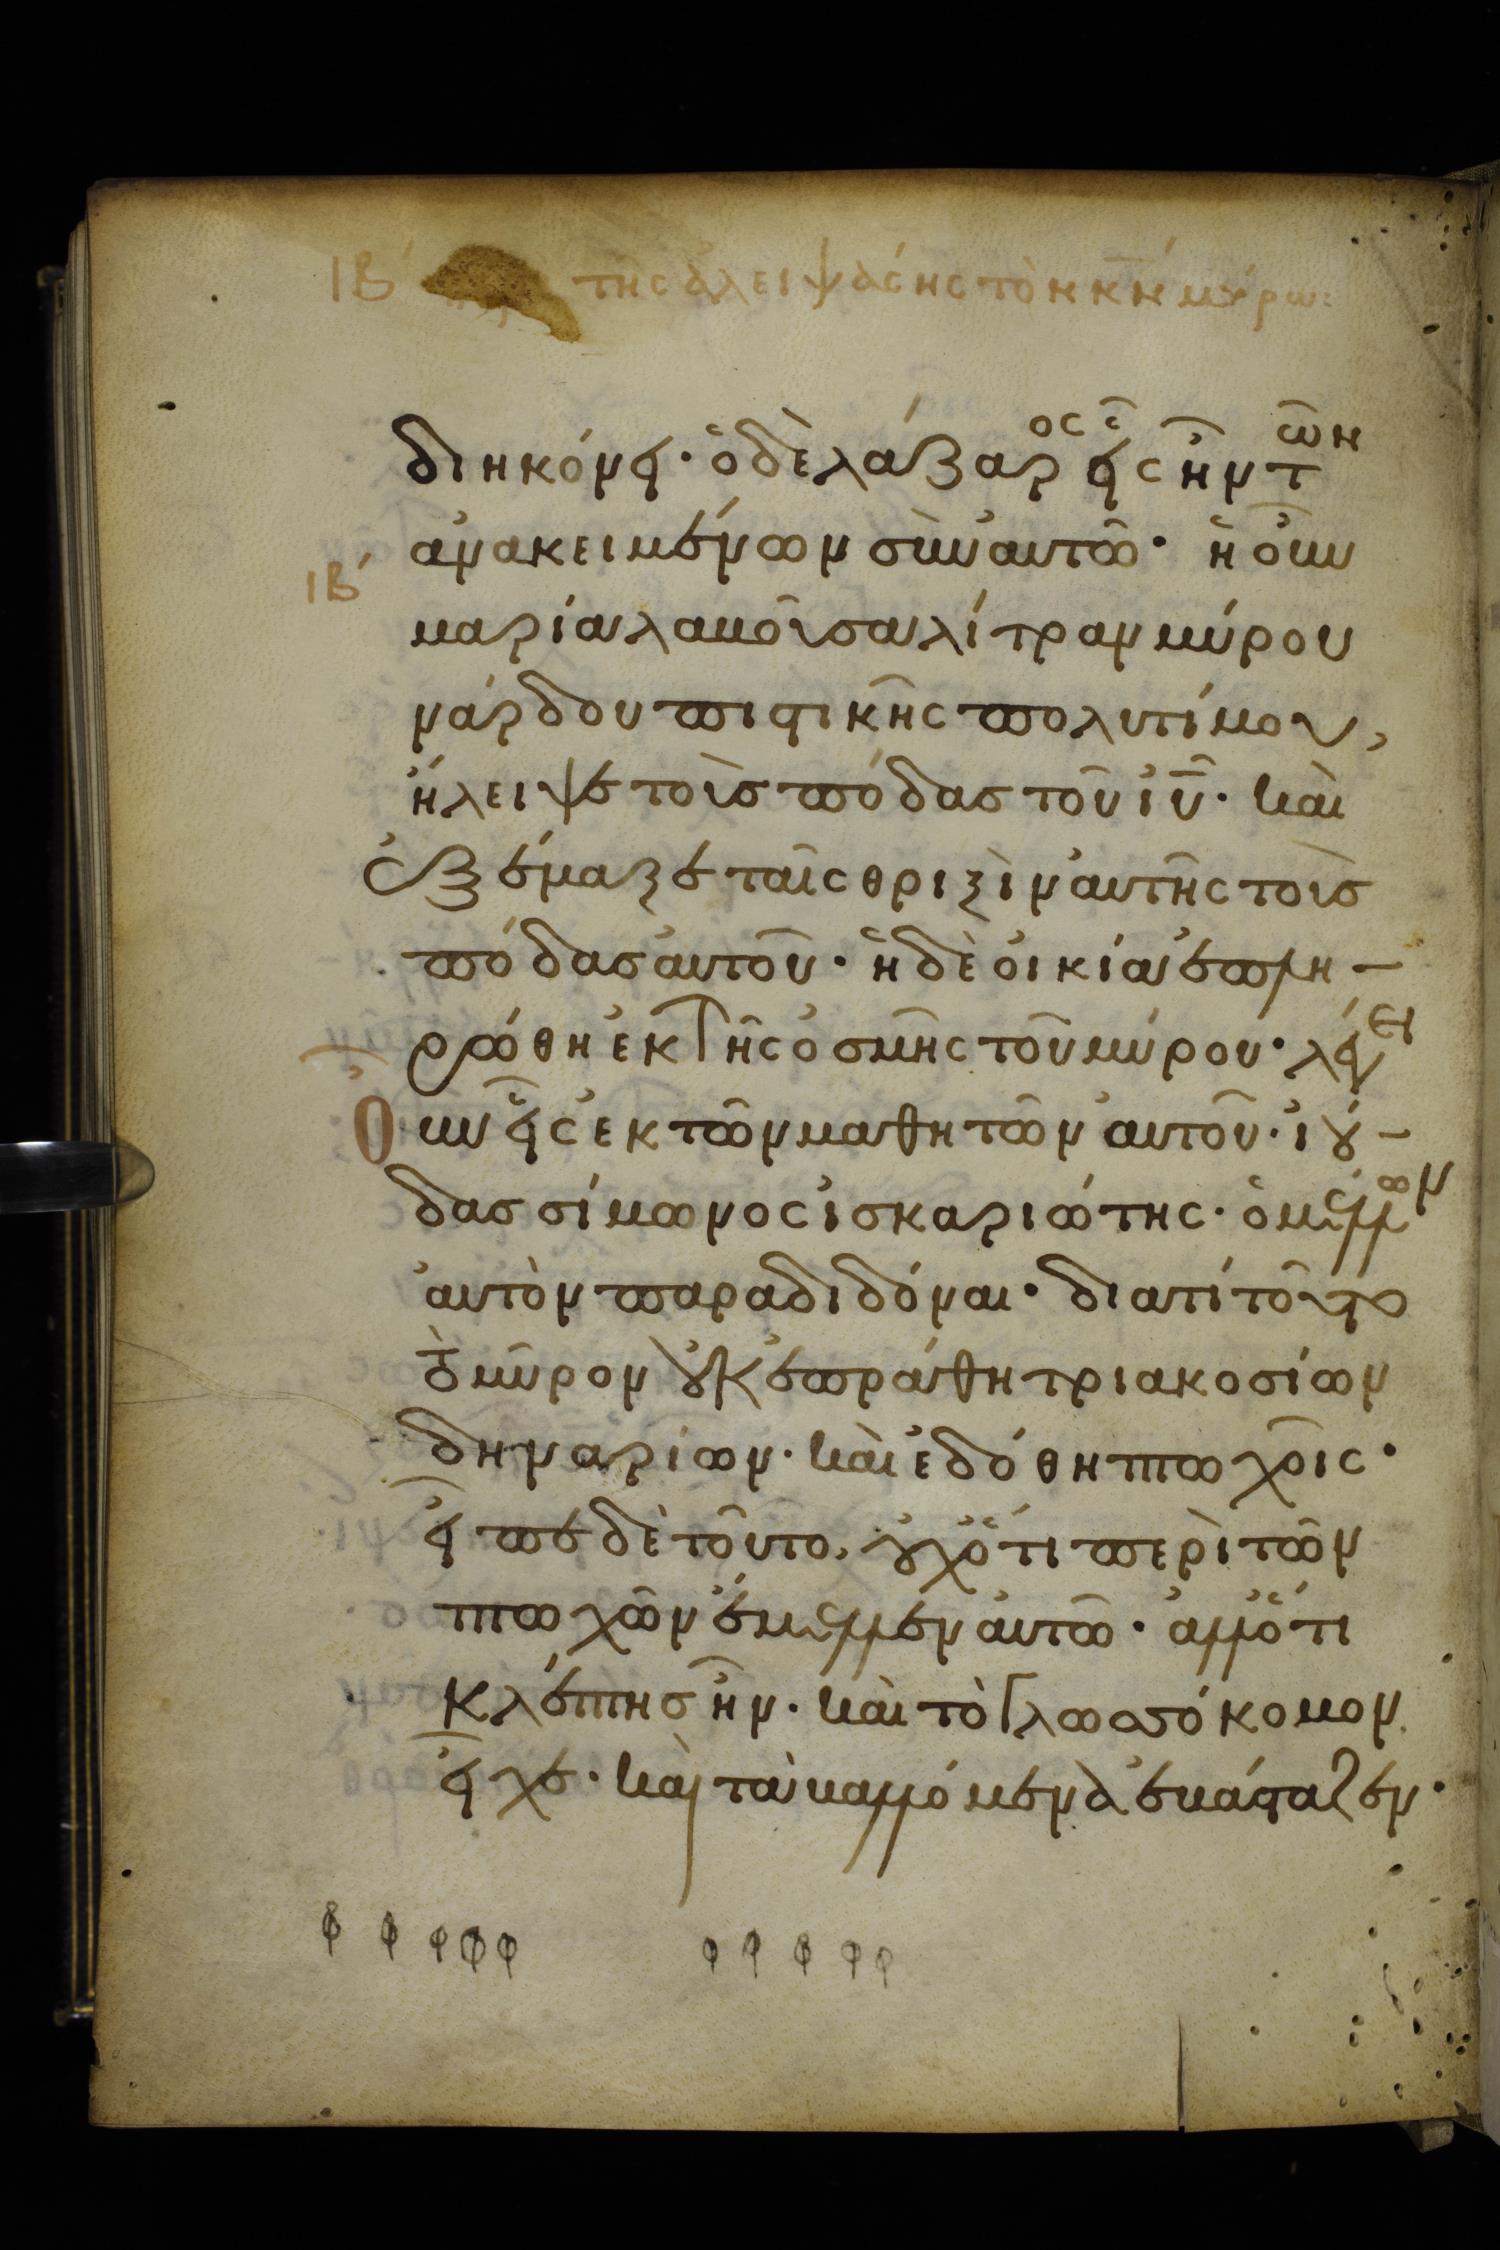 ΙΒ´ τῆς ἀλειψάσης τὸν κ̅ν̅ μύρω:
διηκόνει· ὁ δὲ λάζαρος εἷς ἦν τῶν
ἀνακειμένων σὺν αὐτῶ· ἡ οὖν
ΙΒ´
μαρία λαβοῦσα λίτραν μύρου
νάρδου πιστικῆς πολυτίμου,
ἤλειψε τοὺς πόδας τοῦ ἰ̅υ̅· καὶ
ἐξέμαξε ταῖς θριξὶν αὐτῆς τοὺς
πόδας αὐτοῦ· ἡ δὲ οἰκία ἐπλη-
ρώθη ἐκ τῆς ὀσμῆς τοῦ μύρου· λέγει
Οὖν εἷς ἐκ τῶν μαθητῶν αὐτοῦ· ἰού-
δας σίμωνος ἰσκαριώτης· ὁ μέλλων
αὐτὸν παραδιδόναι· διατί τοῦτο
τὸ μῦρον οὐκ ἐπράθη τριακοσίων
δηναρίων· καὶ ἐδόθη πτωχοῖς·
εἶπε δὲ τοῦτο, οὐχ ὅτι περὶ τῶν
πτωχῶν ἔμελλεν αὐτῶ· ἀλλ' ὅτι
κλέπτης ἦν· καὶ τὸ γλωσσόκομον
εἶχε· καὶ τὰ βαλλόμενα ἐβάσταζεν·